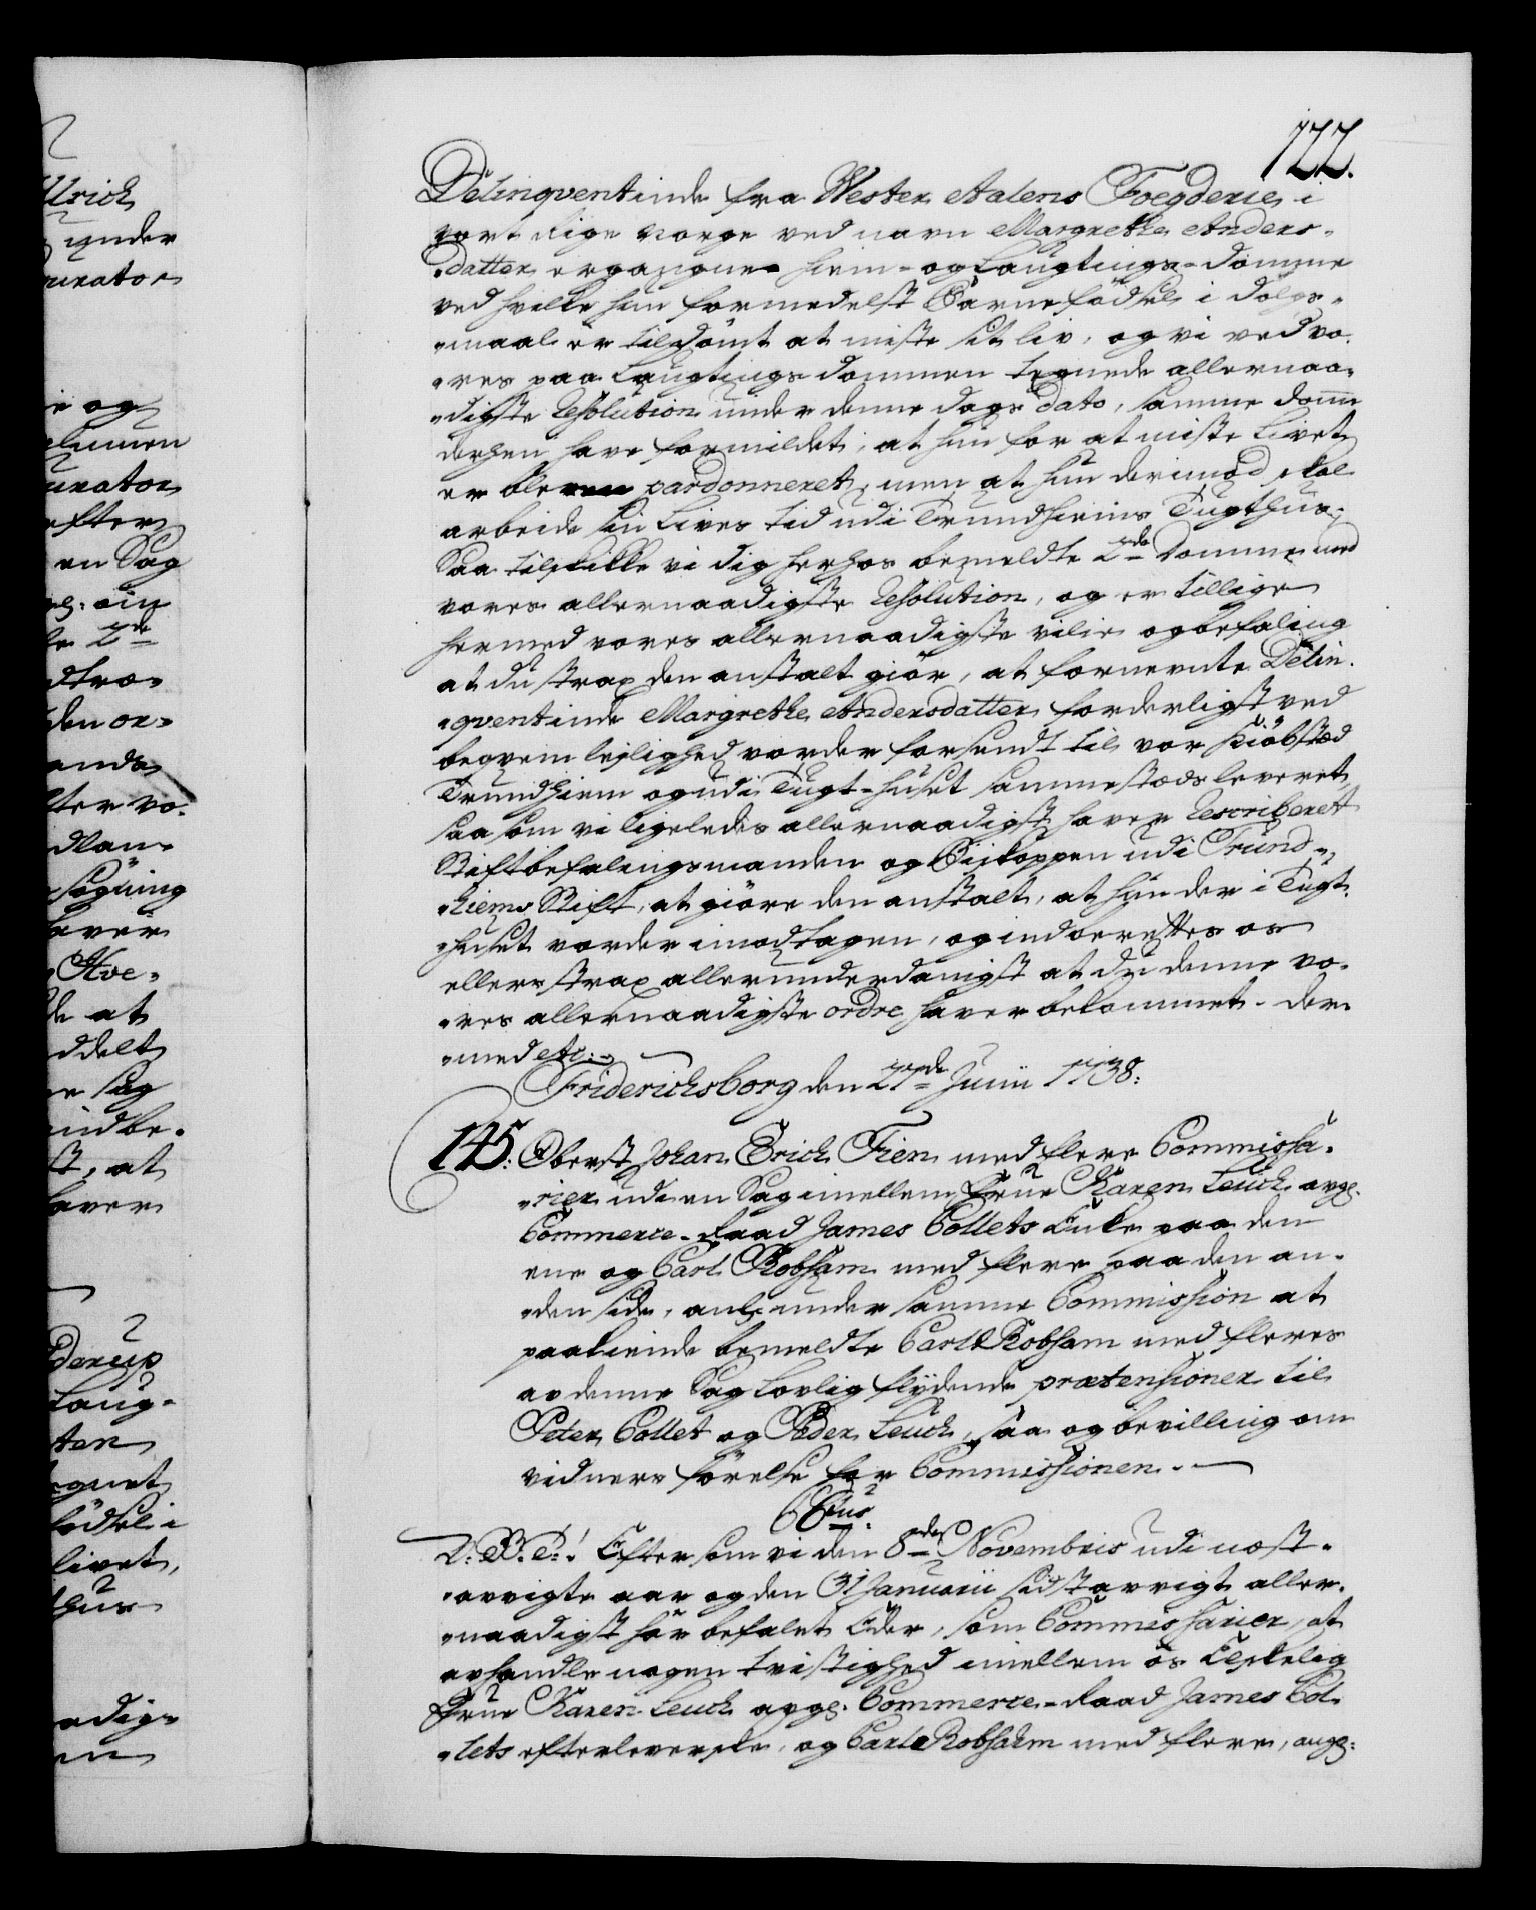 122.
Delinqventinde fra Wester Aalens Foegderie i
vort Rige Norge ved navn Margrethe Anders-
datter ergangne Hiem- og Laugtings-Domme
ved hvilke hun formedelst Barnefödsel i dölgs-
maal er tildömt at miste sit liv, og vi ved vo-
res paa Laugtings dommen tegnede allernaa-
digste Resolution under denne dags dato, samme dom
derhen have formildet, at hun for at miste Livet
er bleven pardonneret, men at hun derimod skal
arbeide sin Lives tid udi Trundhiems Tugthus;
Saa tilskikke vi dig herhos bemeldte 2de Domme med
vores allernaadigste Resolution, og er tillige
hermed vores allernaadigste vilie og befaling
at du strax den anstalt giör, at fornevnte Delin-
qventinde Margrethe Andersdatter forderligst ved
beqvem leylighed vorder forsendt til vor Kiöbsted
Trundhiem og udi Tugt-huset sammesteds leveret,
saasom vi ligeledes allernaadigst haver Rescriberet
Stiftbefalingsmanden og Biskoppen udi Trund-
hiems Stift, at giöre den anstalt, at hun der i Tugt-
huset vorder imodtagen, og indberettes os
ellers strax allerunderdanigst at du denne vo-
res allernaadigste ordre haver bekommet. Der-
med etc:
Friderichsborg den 27de Junii 1738:
145: Oberst Johan Erich Fien med flere Commissa-
rier udi en Sag imellem Frue Karen Leuch avg:
Commerce-Raad James Collets Enke paa den
ene og Carl Robsam med flere paa den an-
den side, anl: under samme Commission at
paakiende bemeldte Carl Robsam med fleres
av denne Sag Lovlig flydende prætensioner til
Peter Collet og Peder Leuch, saa og bevilling om
vidners förelse for Commissionen.
C 6tus.
V: G: T:! Eftersom vi den 8de Novembris udi næst-
avvigte aar og den 31 Januarii sidstavvigt aller-
naadigst har befalet Eder, som Commissarier, at
avhandle nogen tvistighed imellem os Elskelig
Frue Karen Leuch avg: Commerce-Raad James Col-
lets efterleverske, og Carl Robsahm med flere, ang: